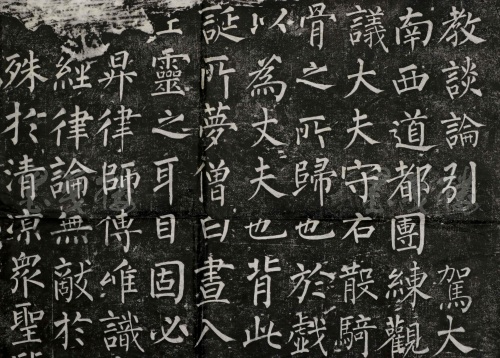 教談論引駕大
南西道都團練觀
議大夫守右散騎
骨之所歸也於戲
以為丈夫也背此
誕所夢僧曰晝入
生靈之耳目固必
昇律師傳維識
經律論無敵於
殊於清涼衆聖